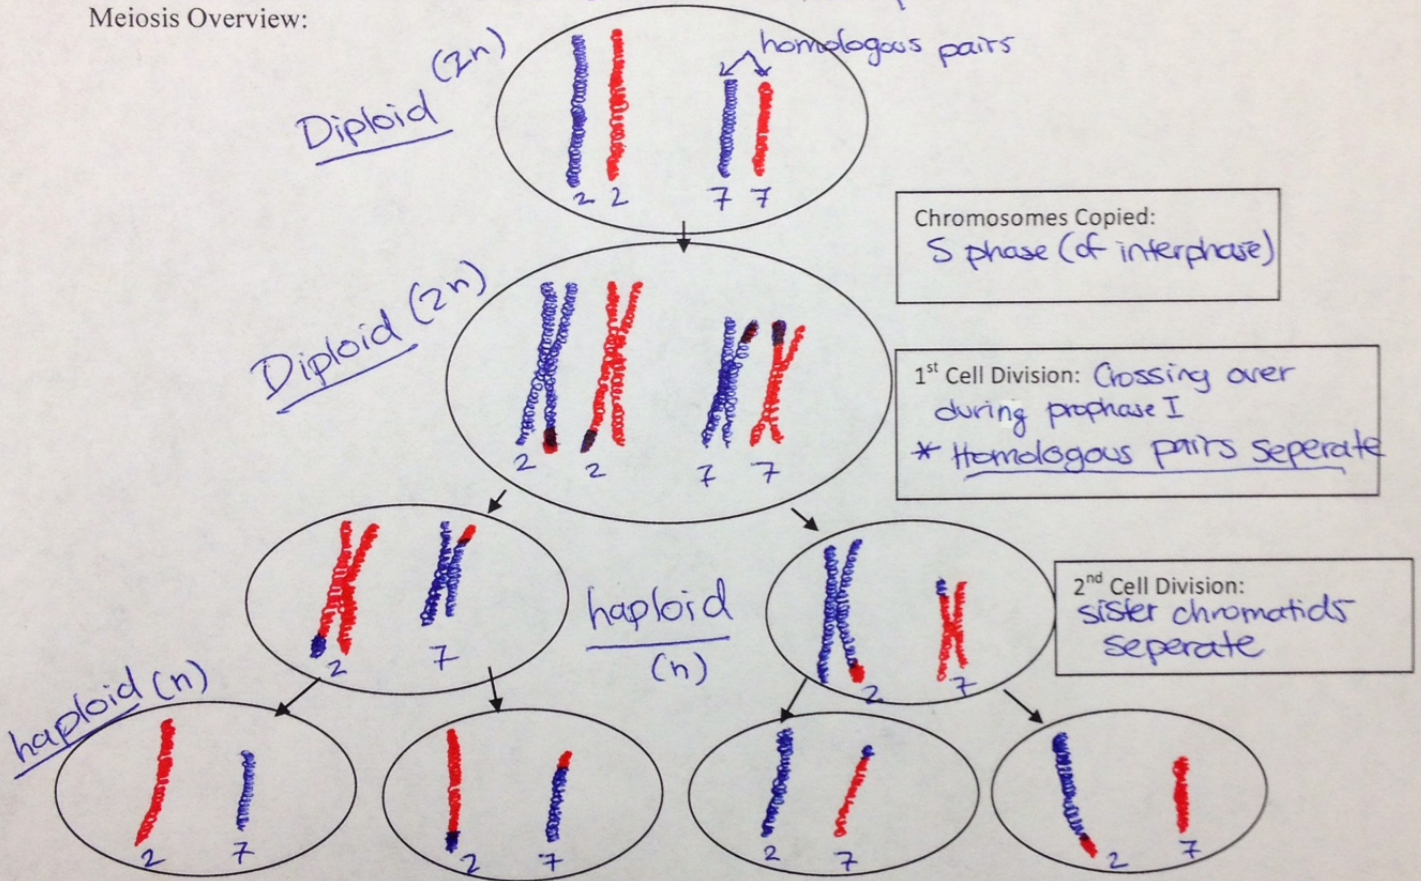 Meiosis Overview:
Diploid (2n)
homologous pairs
2 2 7 7
Chromosomes Copied:
S phase (of interphase)
Diploid (2n)
2 2 7 7
1st Cell Division: Crossing over
during prophase I
* Homologous pairs seperate
2 7
haploid
(n)
2 7
2nd Cell Division:
sister chromatids
seperate
haploid (n)
2 7
2 7
2 7
2 7